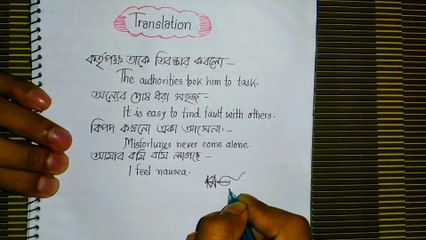 Translation
কর্তৃপক্ষ তাকে তিরস্কার করলো -
The authorities took him to task.
অন্যের দোষ ধরা সহজ -
It is easy to find fault with others.
বিপদ কখনো একা আসেনা।
Misfortunes never come alone.
আমার বমি বমি লাগছে -
I feel nausea.